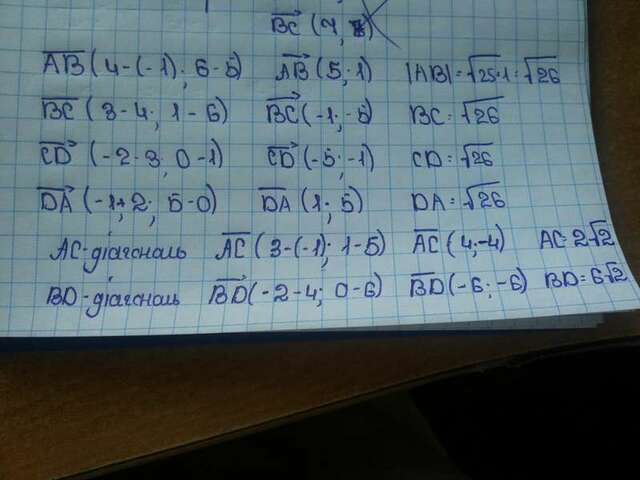 BC (4; )
AB (4-(-1); 6-5) AB (5; 1) |AB| = √25+1 = √26
BC (3-4; 1-6) BC (-1; -5) BC = √26
CD (-2-3; 0-1) CD (-5; -1) CD = √26
DA (-1+2; 5-0) DA (1; 5) DA = √26
AC-діагональ AC (3-(-1); 1-5) AC (4; -4) AC = 2√2
BD-діагональ BD (-2-4; 0-6) BD (-6; -6) BD = 6√2